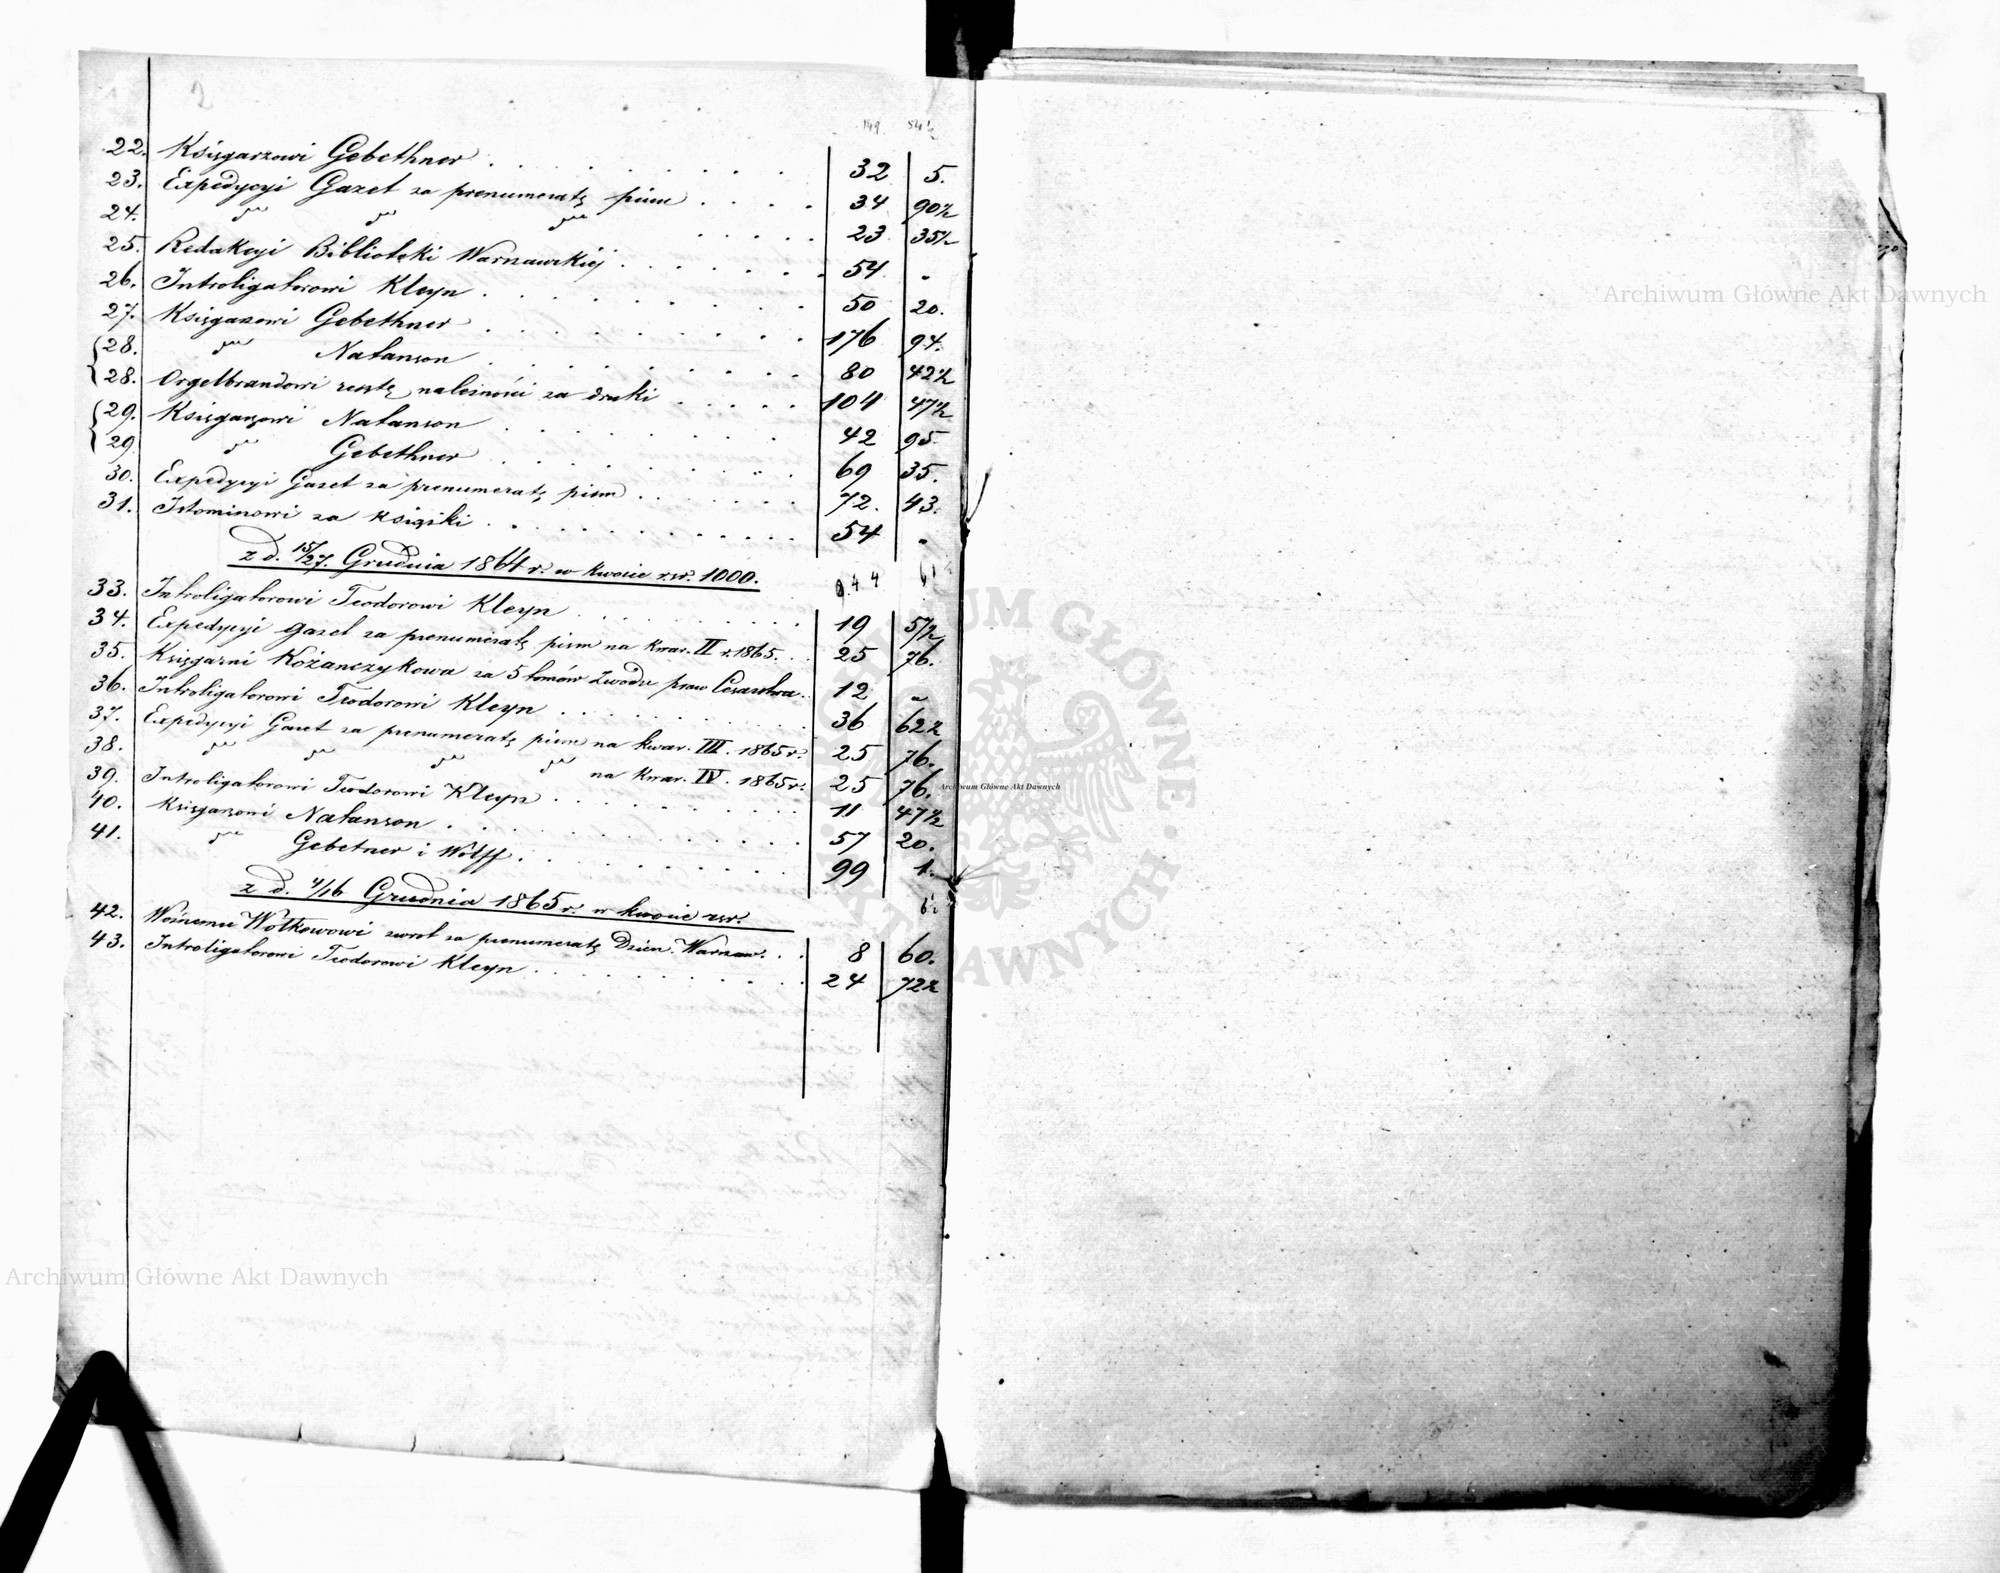 2
149 54½
22. Księgarzowi Gebethner . . . . . . . . . 32 5.
23. Expedycyi Gazet za prenumeratę pism . . . . 34 90½
24. " " " . . . . . 23 35½
25. Redakcyi Biblioteki Warszawskiej . . . . . . . 54 "
26. Introligatorowi Kleyn . . . . . . . . . 50 20.
27. Księgarzowi Gebethner . . . . . . . . . 176 94.
28. " Natanson . . . . . . . . . 80 42½
28. Orgelbrandowi resztę należności za druki . . . . . 104 47½
29. Księgarzowi Natanson . . . . . . . . . 42 95.
29 " Gebethner . . . . . . . . . 69 35.
30. Expedycyi Gazet za prenumeratę pism . . . . . . 72. 43.
31. Istominowi za książki . . . . . . . . . . 54 "
z d. 15/27. Grudnia 1864 r. w kwocie rsr. 1000.
944
33. Introligatorowi Teodorowi Kleyn . . . . . . . . 19 57½
34. Expedycyi gazet za prenumeratę pism na kwar. II r. 1865. . . 25 76.
35. Księgarni Kożanczykowa za 5 tomów Zwodu praw Cesarstwa . . 12 "
36. Introligatorowi Teodorowi Kleyn . . . . . . . . . 36 62½
37. Expedycyi Gazet za prenumeratę pism na kwar. III. 1865 r. 25 76.
38. " " " " na kwar. IV. 1865 r. 25 76.
39. Introligatorowi Teodorowi Kleyn . . . . . . . . . 11 47½
40. Księgarzowi Natanson . . . . . . . . . . . 57 20.
41. " Gebetner i Wolff . . . . . . . . . 99 1.
z d. 4/16 Grudnia 1865 r. w kwocie rsr.
42. Woźnemu Wołkowowi zwrot za prenumeratę Dzien. Warszaw. . . 8 60.
43. Introligatorowi Teodorowi Kleyn . . . . . . . . . 24 72½
Archiwum Główne Akt Dawnych
Archiwum Główne Akt Dawnych
ARCHIWUM GŁÓWNE AKT DAWNYCH
Archiwum Główne Akt Dawnych